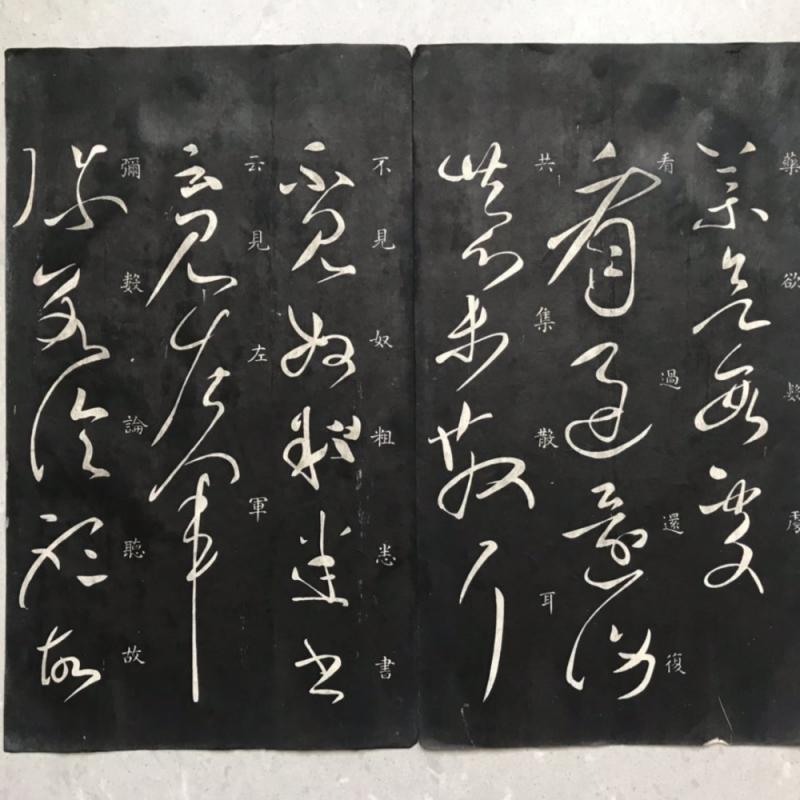 藥欲
看過還復
共集散耳
不見奴粗悉書
云見左軍
彌數論聽故